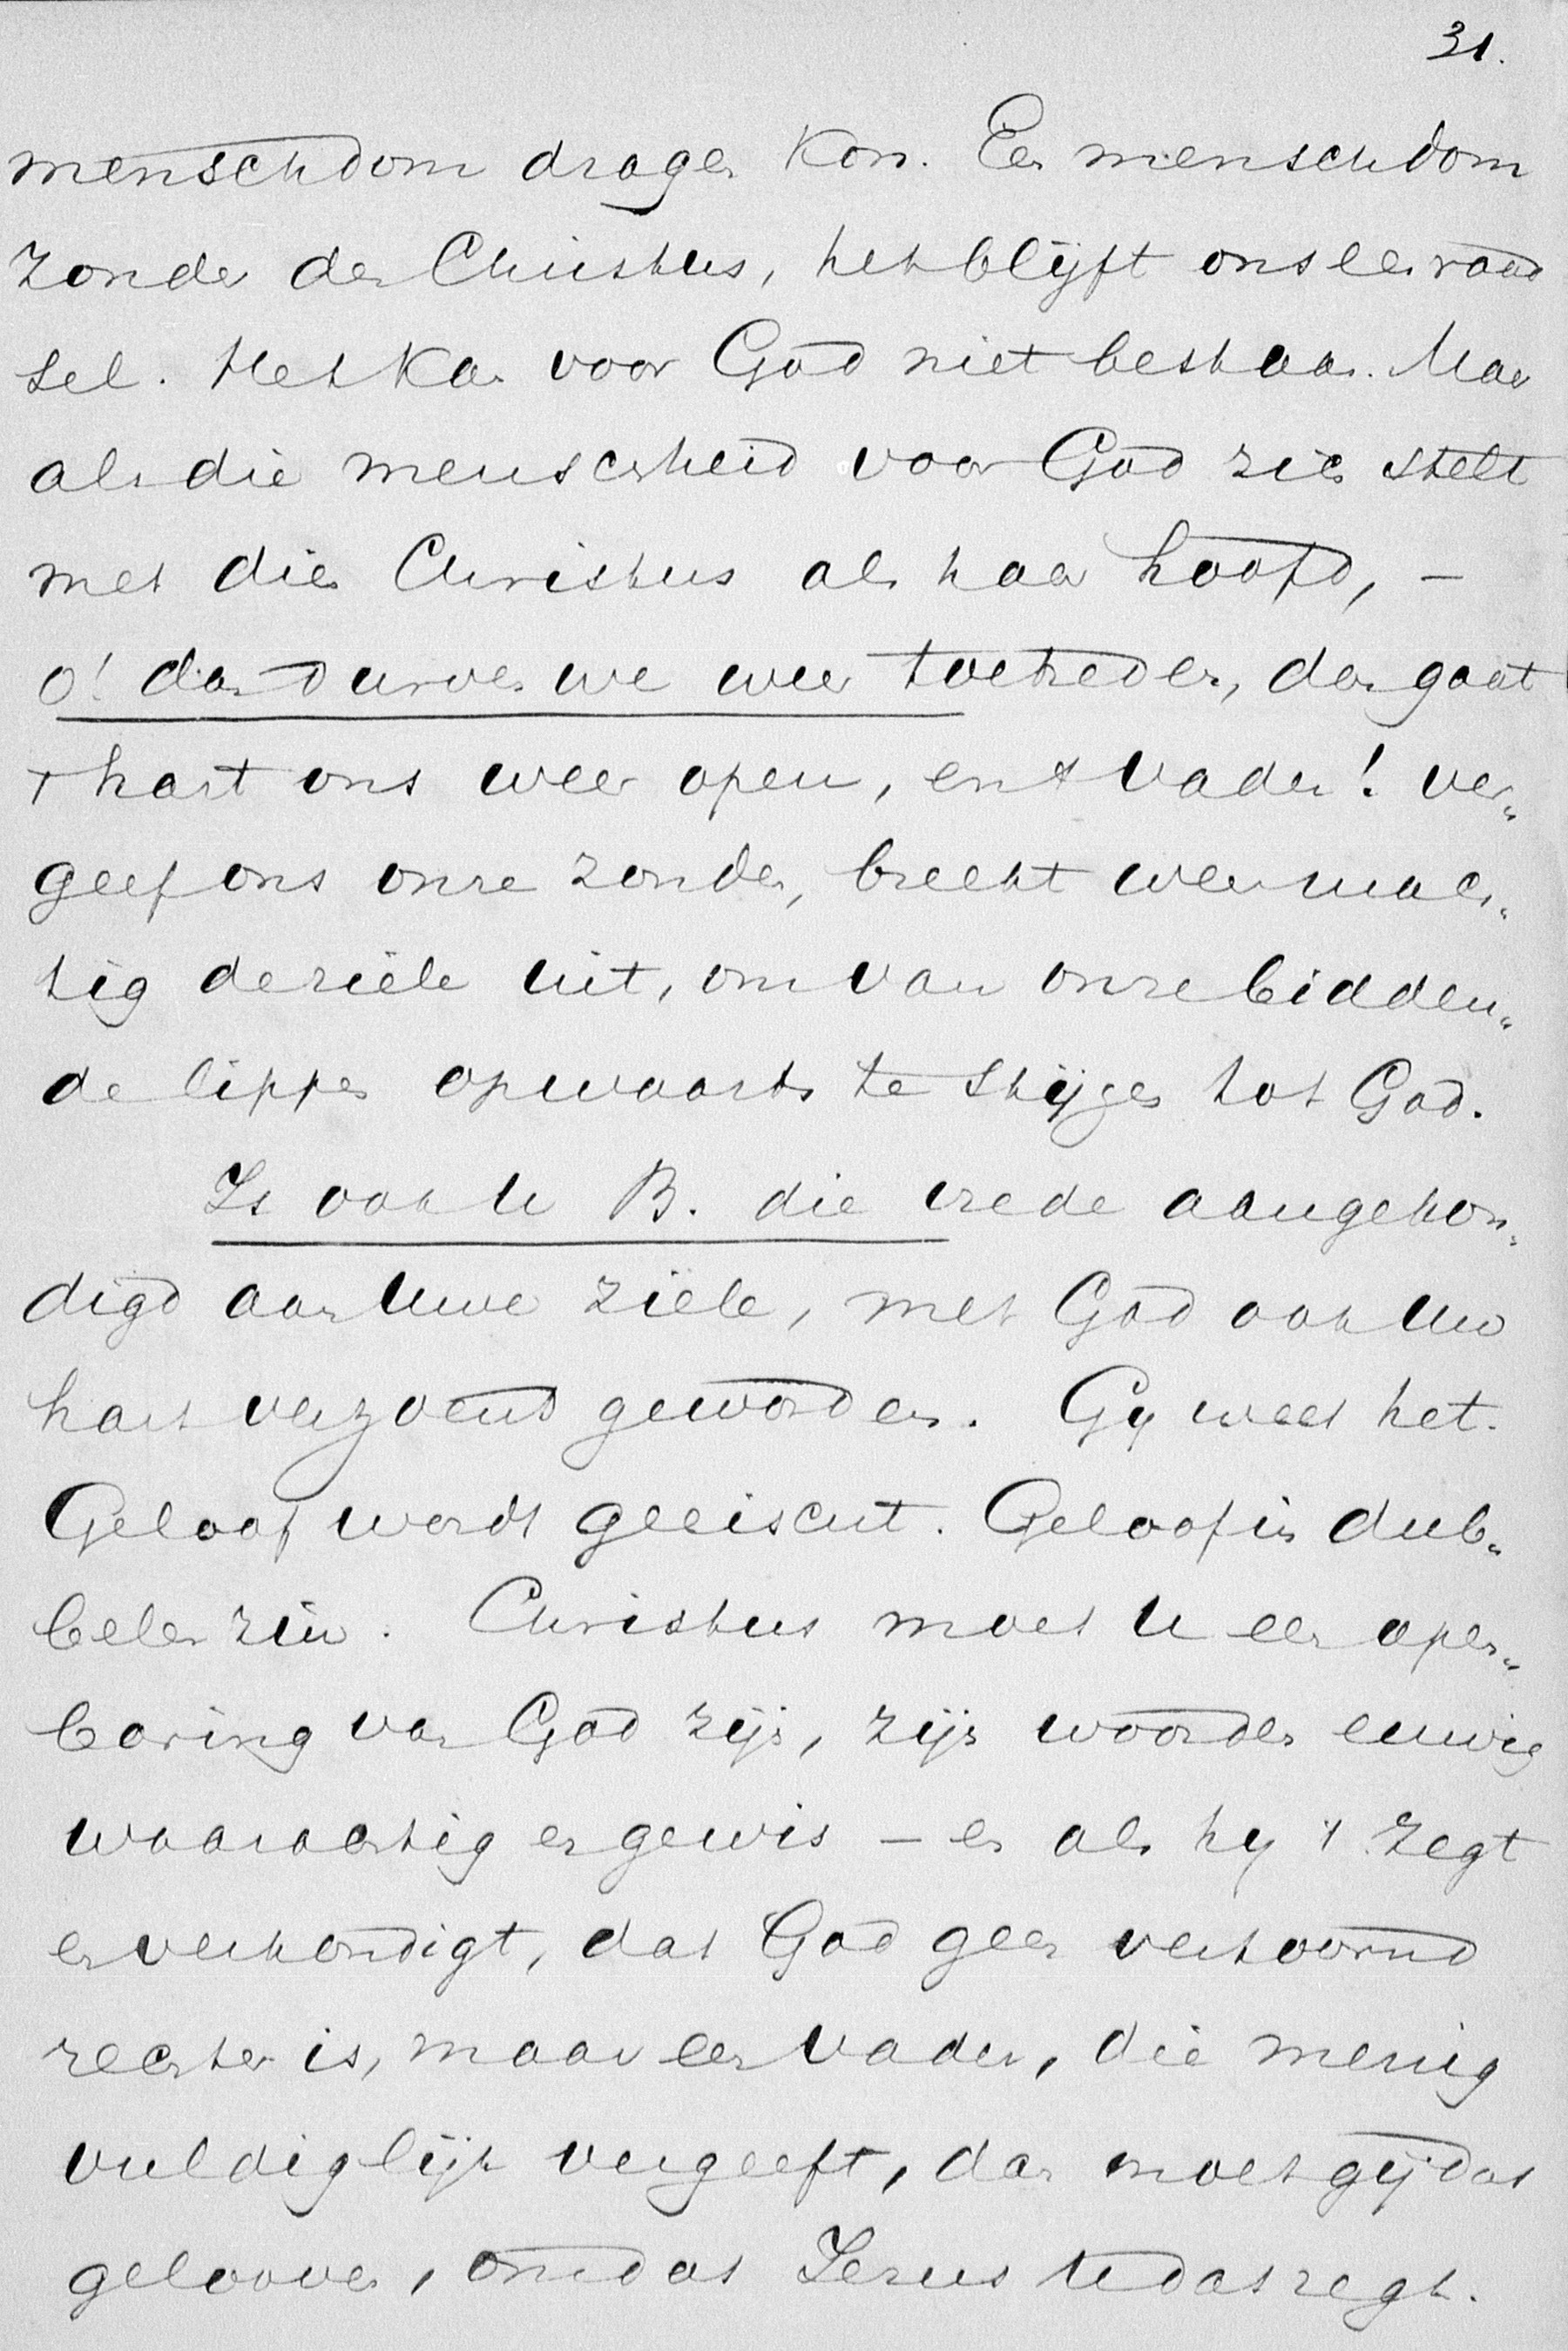 31.
menschdom dragen kon. Een menschdom
zonder den Christus, het blijft ons een raad
sel. Het kan voor God niet bestaan. Maar
als die menschheid voor God zich stelt
met dien Christus als haar hoofd, –
o! dan durven we weer toetreden, dan gaat
't hart ons weer open, en 't Vader! ver„
geef ons onze zonden, breekt weer mach„
tig de ziele uit, om van onze bidden„
de lippen opwaarts te stijgen tot God.
Is ook U B. die vrede aangekon„
digd aan Uwe ziele, met God ook Uw
hart verzoend geworden. Gy weet het.
Geloof wordt geeischt. Geloof in dub„
belen zin. Christus moet U een open„
baring van God zijn, zijn woorden eeuwig
waarachtig en gewis – en als hy 't zegt
en verkondigt, dat God geen vertoornd
rechter is, maar een Vader, die menig
vuldiglijk vergeeft, dan moet gij dat
gelooven, omdat Jezus U dat zegt.